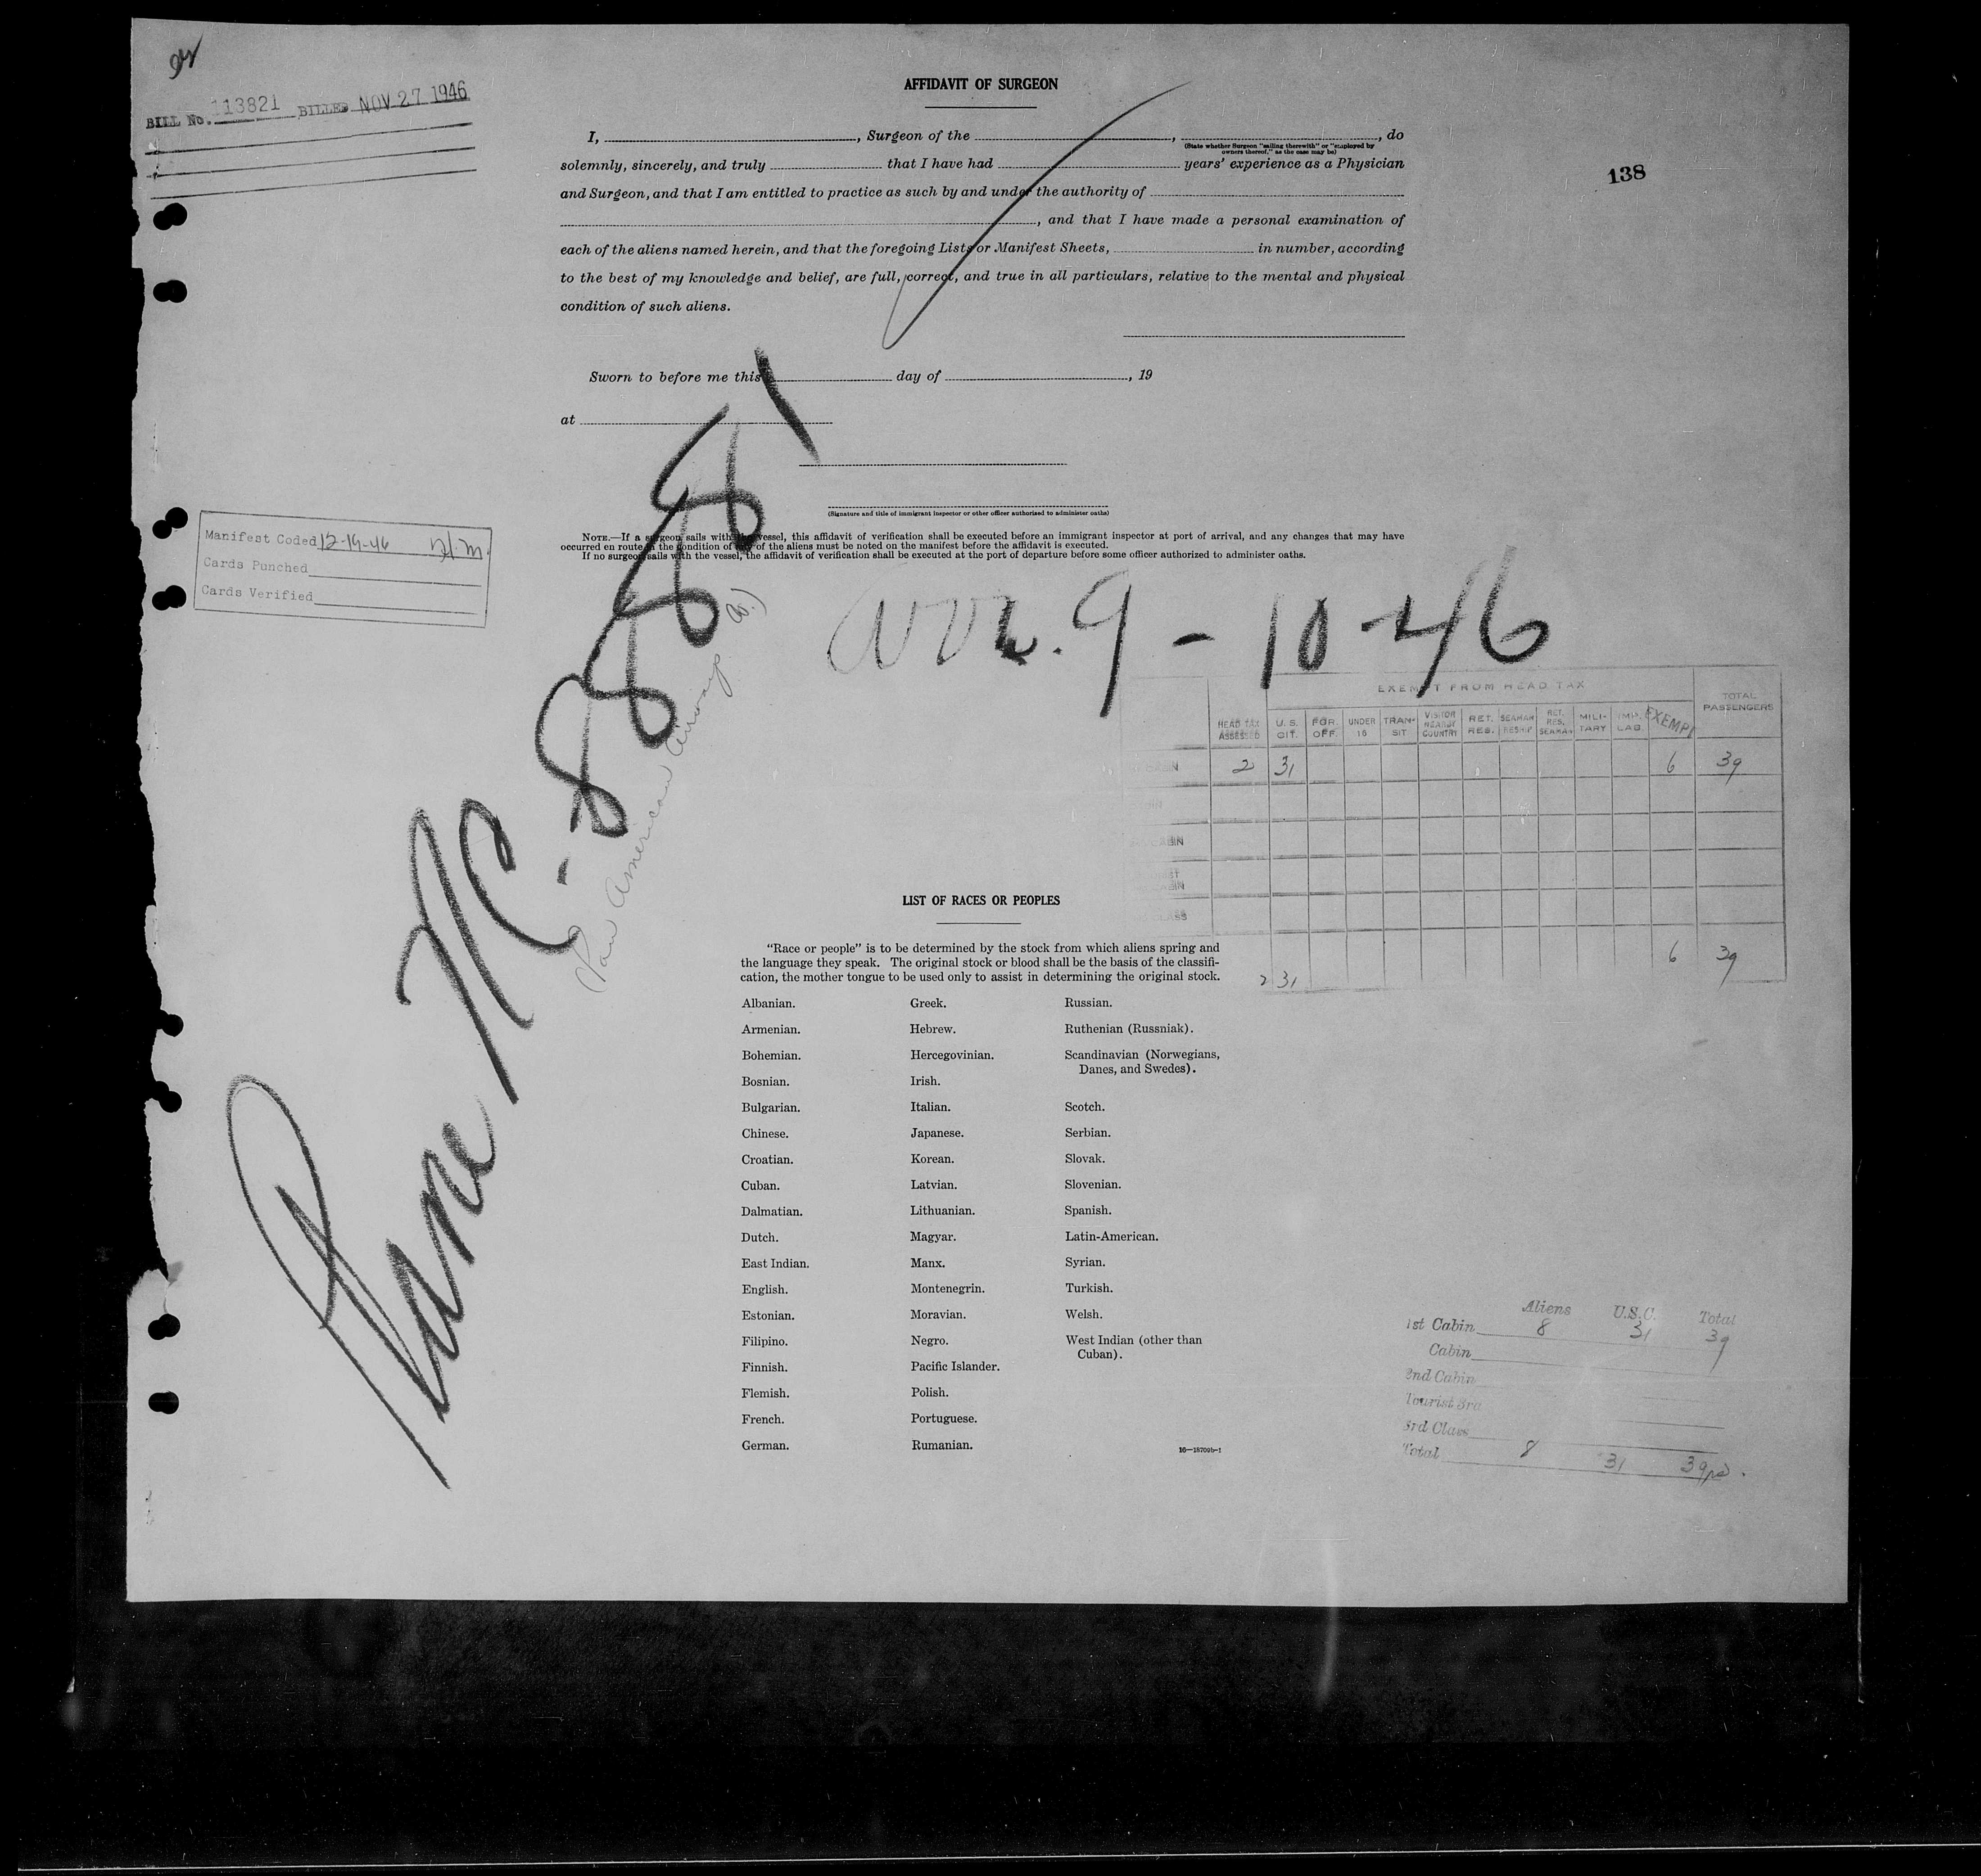 BILL No. 113821 BILLED NOV 27 1946
138
AFFIDAVIT OF SURGEON
I, , Surgeon of the , , do
(State whether Surgeon "sailing therewith" or "employed by
owners thereof," as the case may be)
solemnly, sincerely, and truly that I have had years' experience as a Physician
and Surgeon, and that I am entitled to practice as such by and under the authority of
, and that I have made a personal examination of
each of the aliens named herein, and that the foregoing Lists or Manifest Sheets, in number, according
to the best of my knowledge and belief, are full, correct, and true in all particulars, relative to the mental and physical
condition of such aliens.
Sworn to before me this day of , 19
at
(Signature and title of immigrant inspector or other officer authorized to administer oaths)
NOTE.—If a surgeon sails with the vessel, this affidavit of verification shall be executed before an immigrant inspector at port of arrival, and any changes that may have
occurred en route in the condition of any of the aliens must be noted on the manifest before the affidavit is executed.
If no surgeon sails with the vessel, the affidavit of verification shall be executed at the port of departure before some officer authorized to administer oaths.
Manifest Coded 12-19-46
Cards Punched
Cards Verified
Plane NC-88881
(Pan American Airways Co.)
Arr. 9-10-46
EXEMPT FROM HEAD TAX
HEAD TAX ASSESSED U.S. CIT. FOR. OFF. UNDER 16 TRANSIT VISITOR NEARBY COUNTRY RET. RES. SEAMAN RESHIP RET. RES. SEAMAN MILITARY IMP. LAB. EXEMPT TOTAL PASSENGERS
2 31 6 39
2 31 6 39
LIST OF RACES OR PEOPLES
"Race or people" is to be determined by the stock from which aliens spring and
the language they speak. The original stock or blood shall be the basis of the classifi-
cation, the mother tongue to be used only to assist in determining the original stock.
Albanian.
Armenian.
Bohemian.
Bosnian.
Bulgarian.
Chinese.
Croatian.
Cuban.
Dalmatian.
Dutch.
East Indian.
English.
Estonian.
Filipino.
Finnish.
Flemish.
French.
German.
Greek.
Hebrew.
Hercegovinian.
Irish.
Italian.
Japanese.
Korean.
Latvian.
Lithuanian.
Magyar.
Manx.
Montenegrin.
Moravian.
Negro.
Pacific Islander.
Polish.
Portuguese.
Rumanian.
Russian.
Ruthenian (Russniak).
Scandinavian (Norwegians,
Danes, and Swedes).
Scotch.
Serbian.
Slovak.
Slovenian.
Spanish.
Latin-American.
Syrian.
Turkish.
Welsh.
West Indian (other than
Cuban).
16—18709b-1
Aliens U.S.C. Total
1st Cabin 8 31 39
Cabin
2nd Cabin
Tourist 3rd
3rd Class
Total 8 31 39